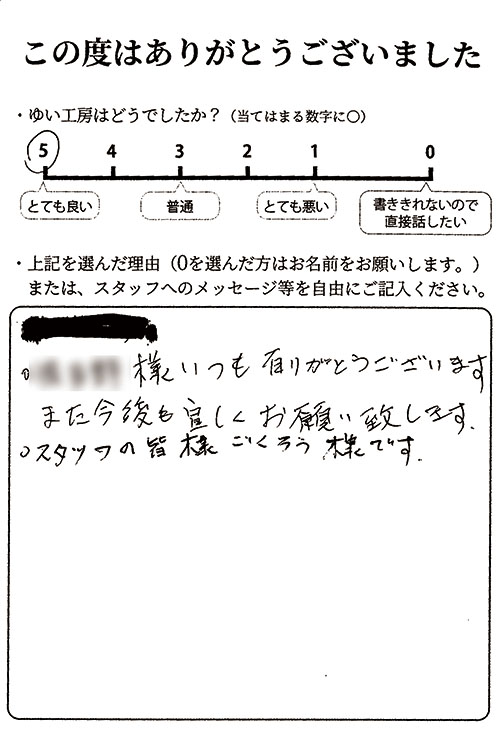 この度はありがとうございました
・ゆい工房はどうでしたか？（当てはまる数字に〇）
5 4 3 2 1 0
とても良い 普通 とても悪い 書ききれないので
直接話したい
・上記を選んだ理由（0を選んだ方はお名前をお願いします。）
または、スタッフへのメッセージ等を自由にご記入ください。
○ 様いつも有りがとうございます
また今後も宜しくお願い致します.
○スタッフの皆様ごくろう様です.